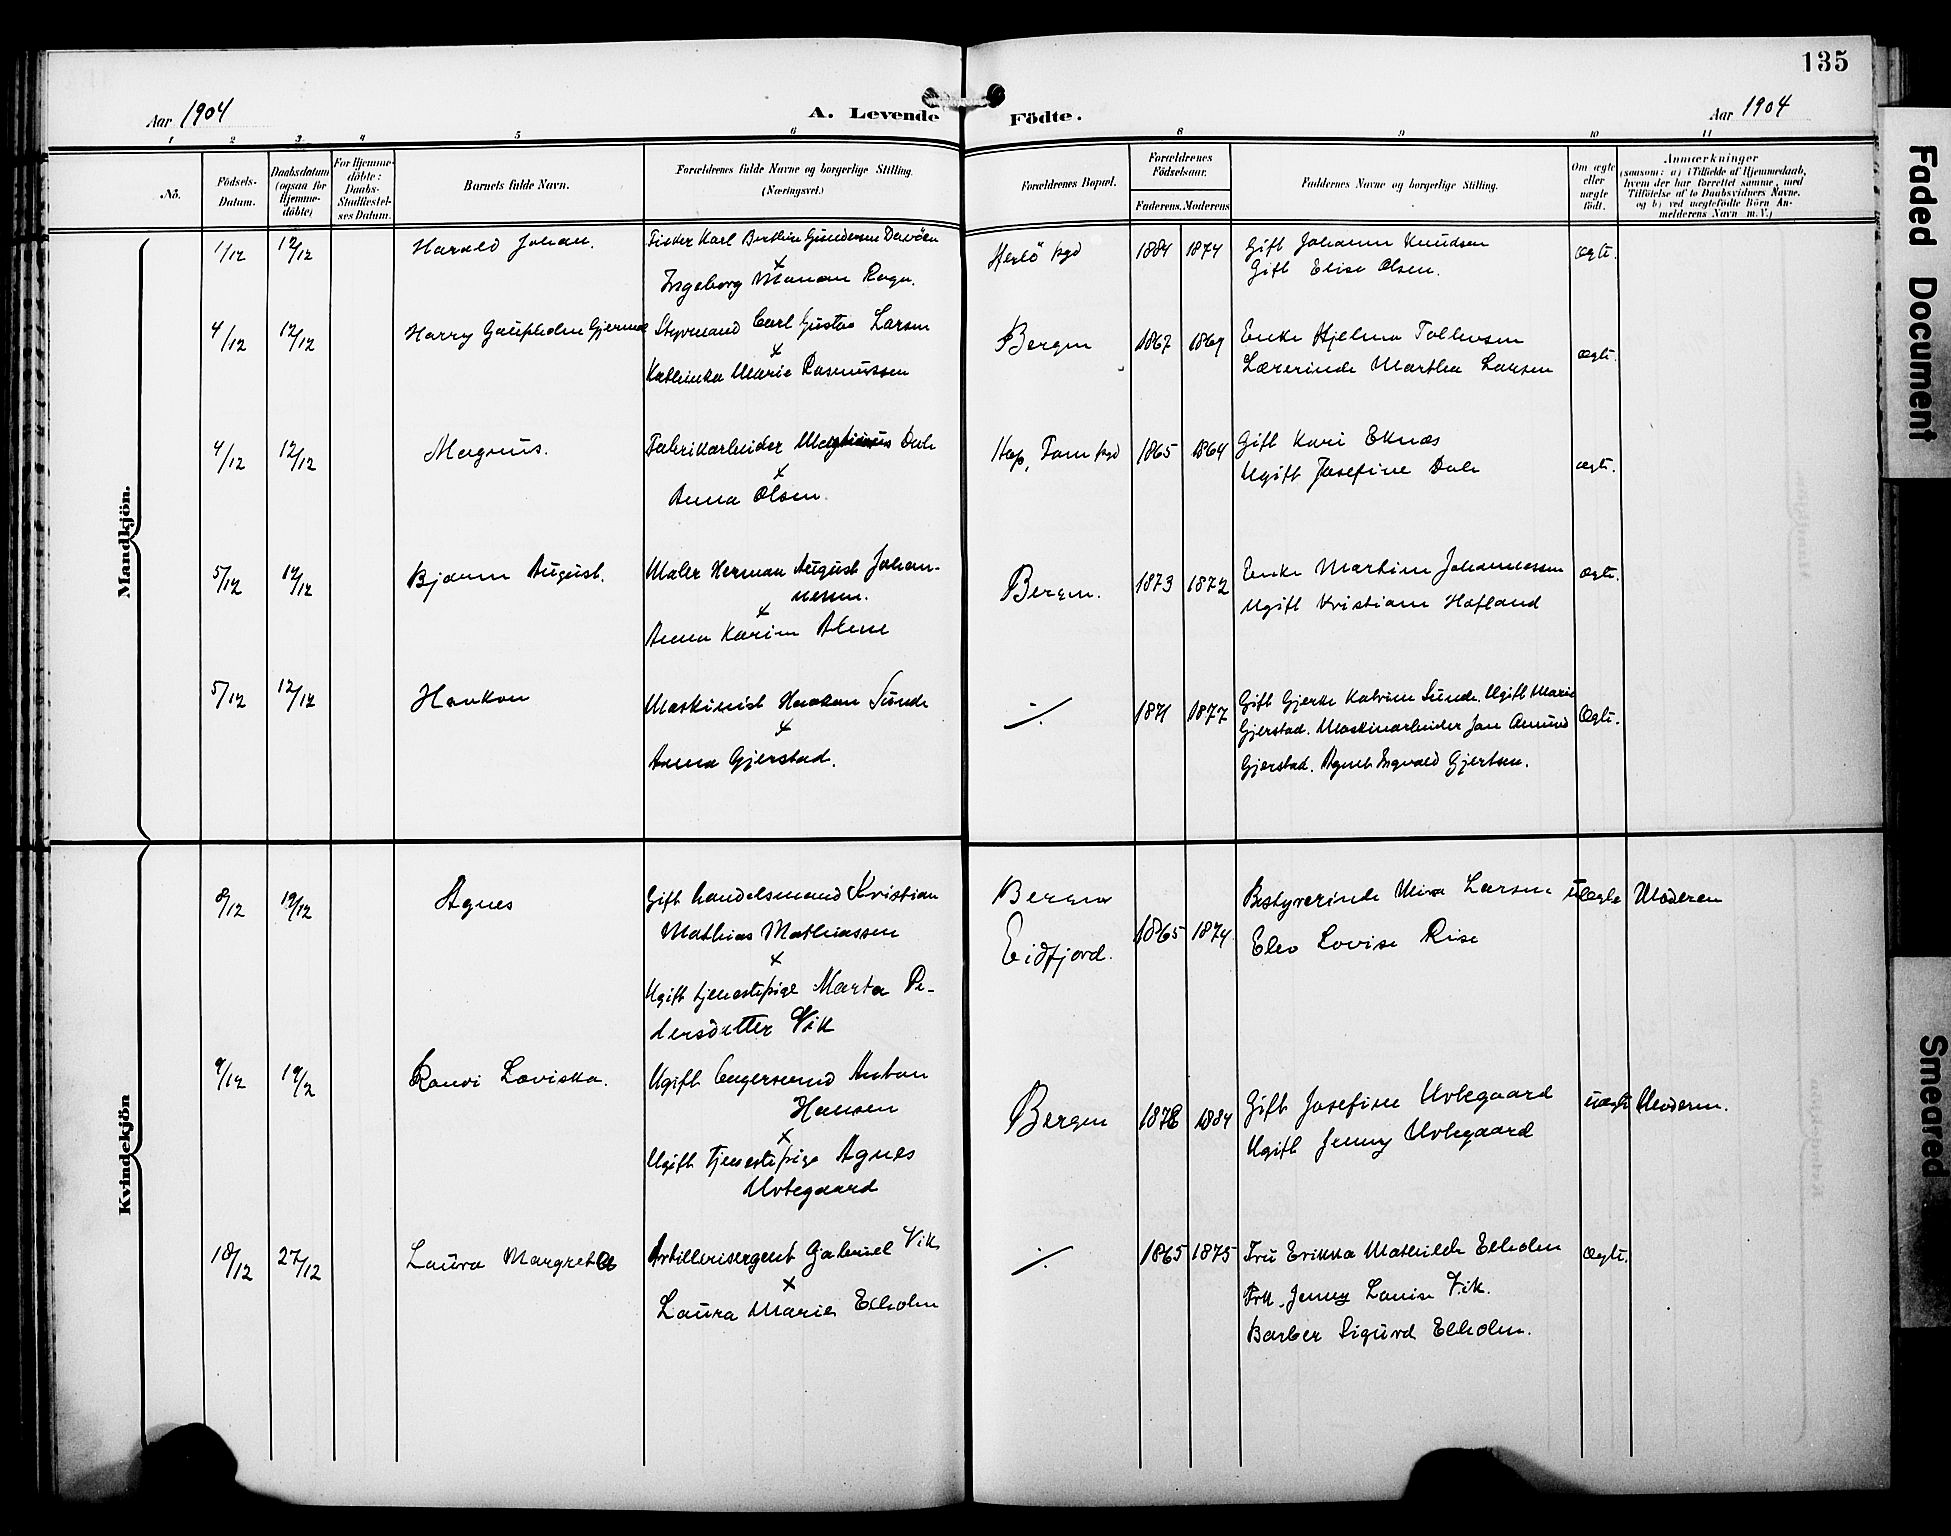 135
Aar 1904
A. Levende
Födte.
Aar 1904
1 2 3 4 5 6 8 9 10 11
No.
Födsels-
Datum.
Daabsdatum
(ogsaa for
Hjemme-
döbte)
For Hjemme-
döbte:
Daabs-
Stadfæstel-
ses Datum.
Barnets fulde Navn.
Forældrenes fulde Navne og borgerlige Stilling.
(Næringsvei.)
Forældrenes Bopæl.
Forældrenes
Födselsaar.
Faderens. Moderens.
Faddernes Navne og borgerlige Stilling.
Om ægte
eller
uægte
födt.
Anmærkninger
(saasom: a) i Tilfælde af Hjemmedaab,
hvem der har forrettet samme, med
Tilföielse af to Daabsvidners Navne.
og b) ved uægtefödte Börn An-
melderens Navn m. V.)
Mandkjön.
1/12 12/12 Harald Johan.
Fisker Karl Berthin Gundersen
x
Ingeborg
Herlö pgd 1884 1874
Gift Johanne Knudsen
Gift Elise Olsen.
ægte.
4/12 12/12 Harry
Styrmand Carl Gustav Larsen
x
Kathinka Marie Rasmussen
Bergen 1867 1869
Enke Hjelma Tollevsen
Lærerinde Martha Larsen
ægte.
4/12 12/12 Magnus.
Fabrikarbeider Dale
x
Anna Olsen.
Hop, Fane pgd 1865 1864
Gift Kari Eknæs
Ugift Josefine Dale
ægte.
5/12 12/12 Bjarne August.
Maler Herman August Johan-
nesen.
x
Anna Karine
Bergen. 1873 1872
Enke Martine Johannessen
Ugift Kristiane Hafland
ægte.
5/12 12/12 Haakon
Maskinist Haakon Sunde
x
Anna Gjerstad.
-/. 1871 1877
Gift Gjerte Katrine Sunde. Ugift Marie
Gjerstad. Maskinarbeider Jan Amund
Gjerstad. Agent Ingvald Gjertsen.
Ægte.
Kvindekjön
8/12 12/12 Agnes
Gift handelsmand Kristian
Mathias Mathiassen
x
Ugift tjenestepige Marta Pe-
dersdatter Vik
Bergen
Eidfjord.
1865 1874.
Bestyrerinde Mina Larsen
Elev Lovise Rise
uægte Moderen
9/12 19/2 Randi Loviska.
Ugift Anton
Hansen
x
Ugift Tjenestepige Agnes
Urtegaard
Bergen 1878 1884
Gift Josefine Urtegaard
Ugift Jenny Urtegaard
uægte Moderen.
18/12 27/12 Laura Margretha
Artillerisergent Gabriel Vik
x
Laura Marie Ekholm
-/. 1865 1875
Fru Erikka Mathilde Ekholm
Frk. Jenny Lovise Vik.
Barber Sigurd Ekholm.
ægte.
Faded Document
Smeared